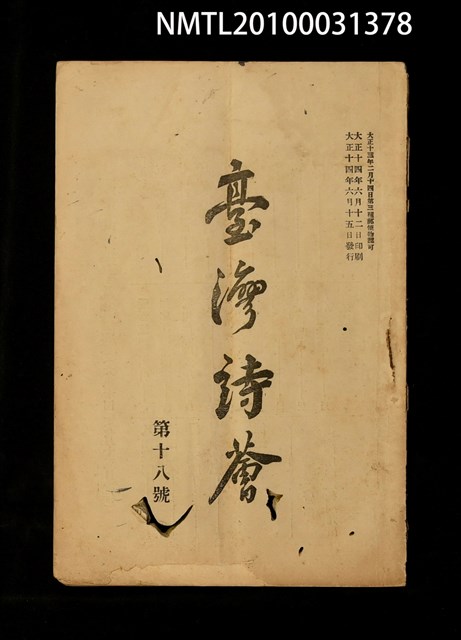 NMTL20100031378
大正十三年二月十四日第三種郵便物認可
大正十四年六月十二日印刷
大正十四年六月十五日發行
臺灣詩薈
第十八號